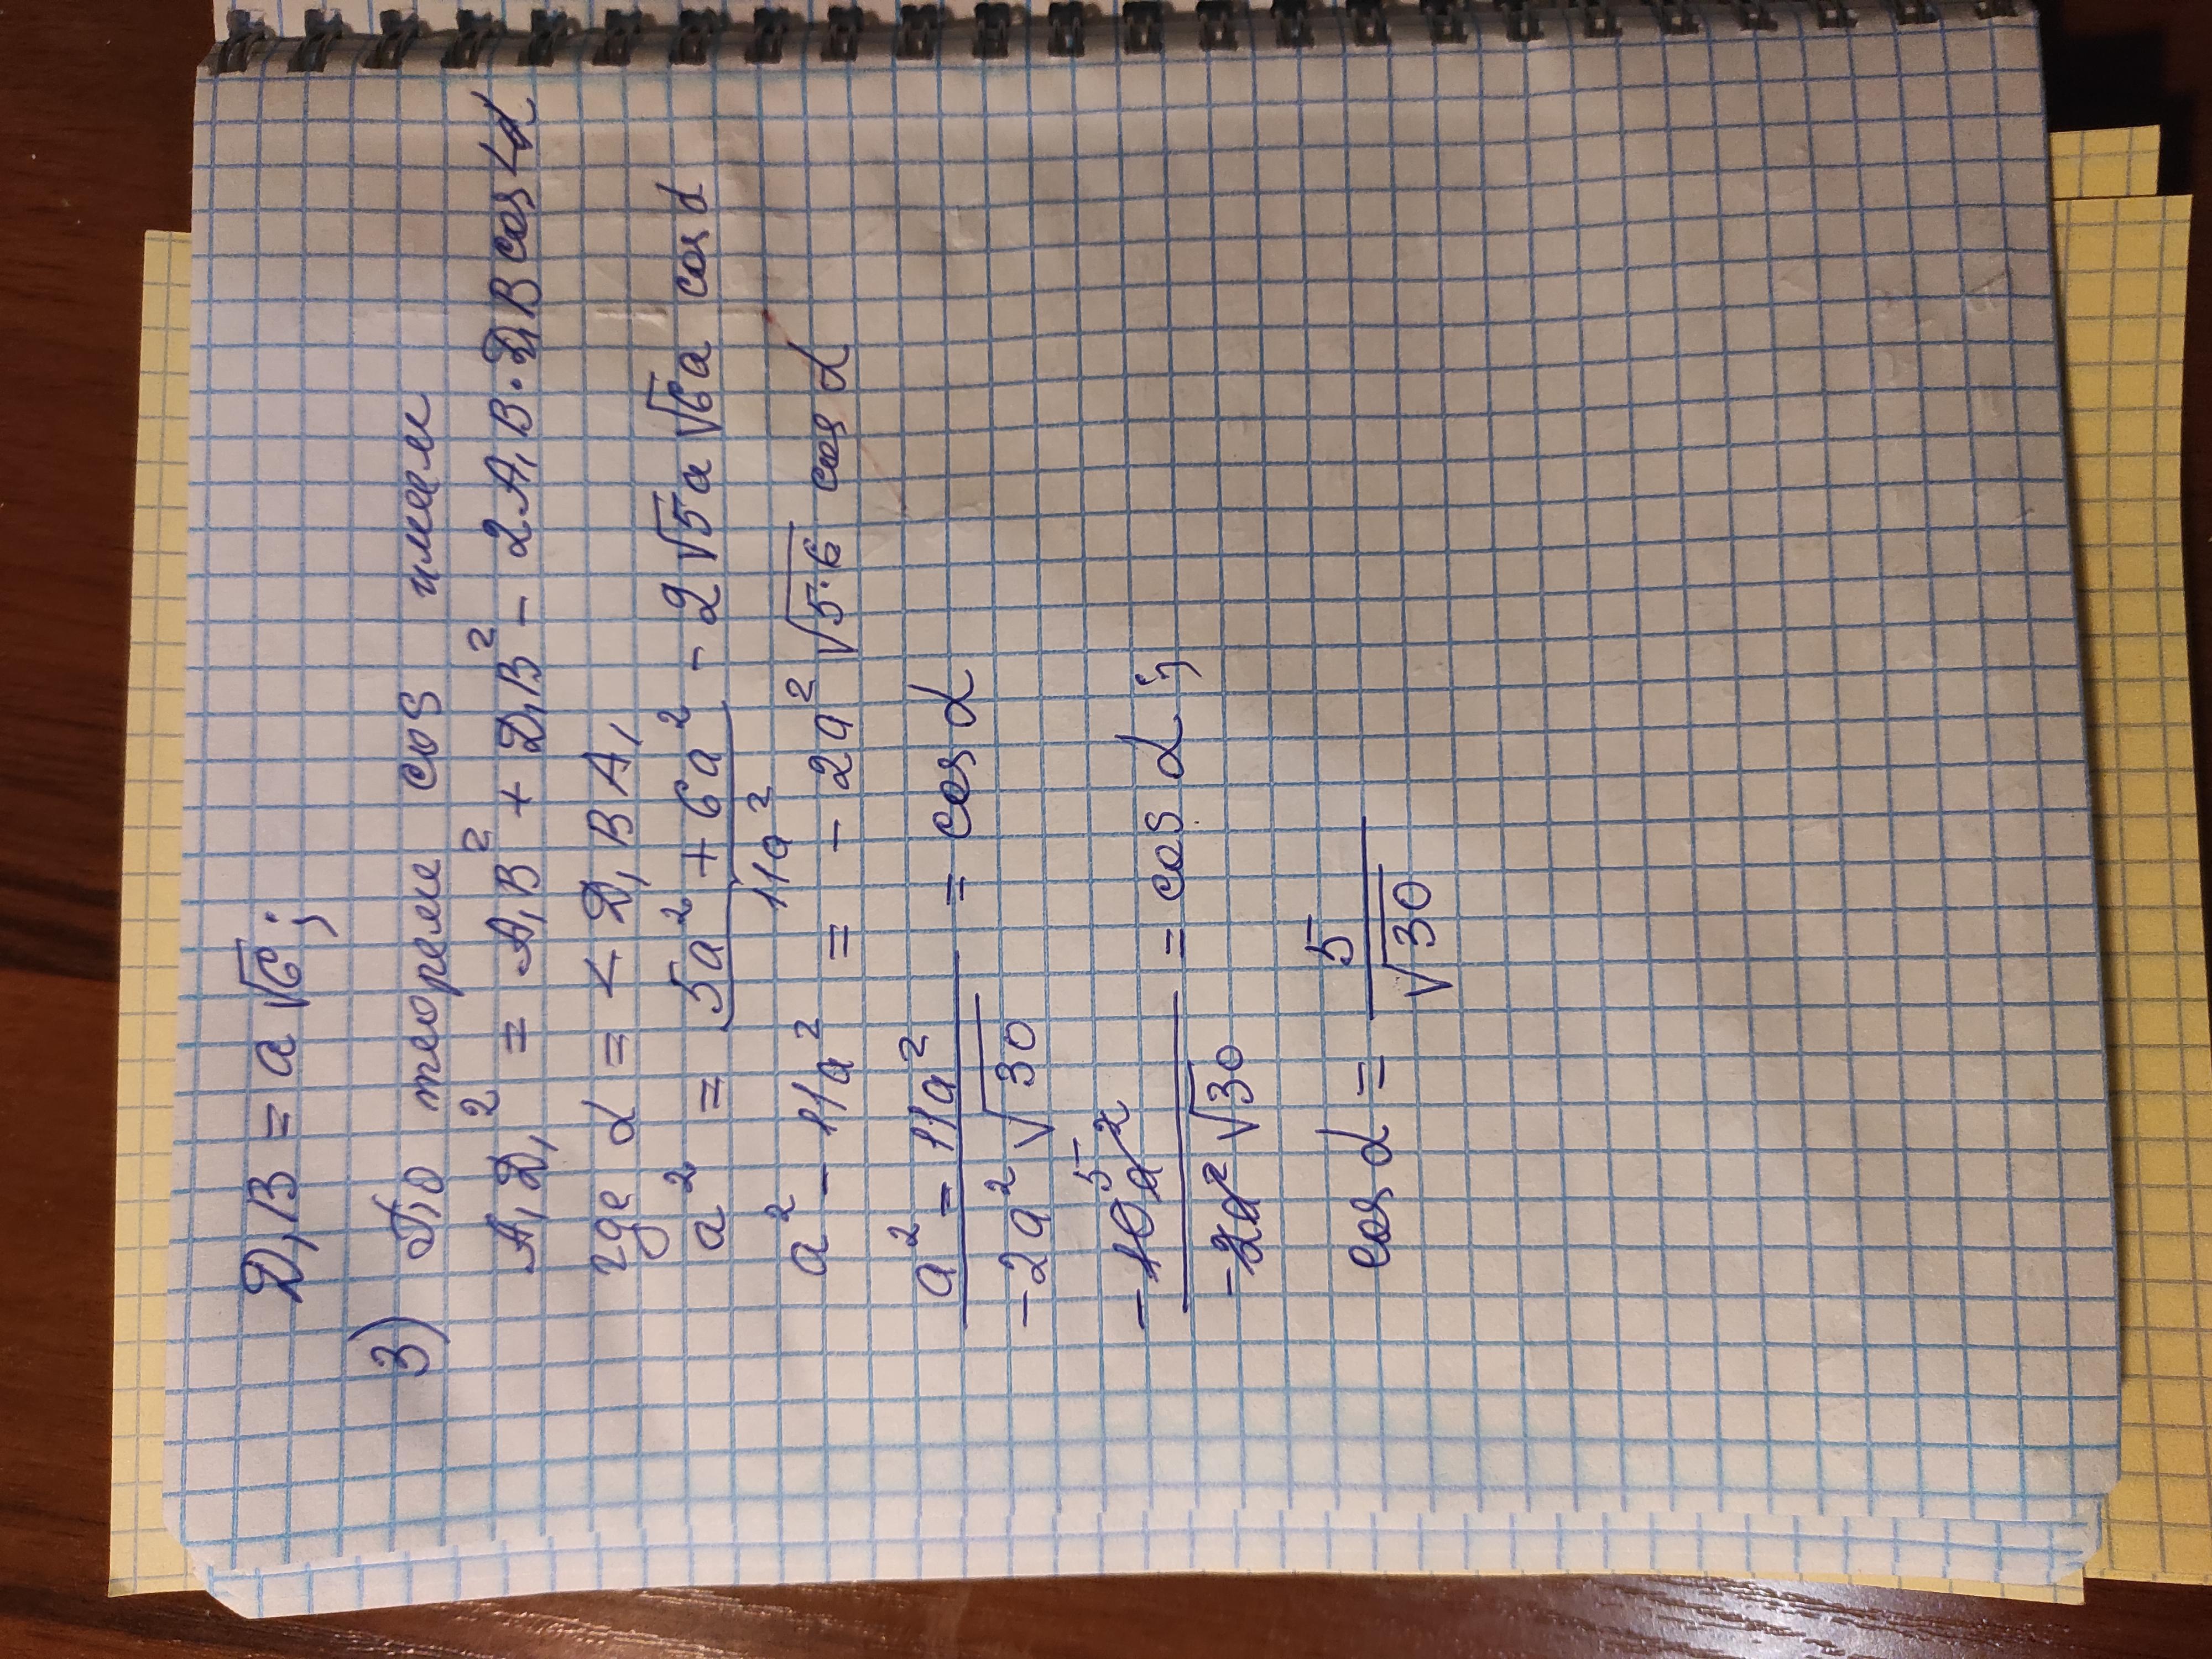 Д₁В = a√6;
3) По теореме cos имеем
A₁Д₁² = A₁B² + Д₁B² - 2A₁B·Д₁B cos∠α
где α = ∠Д₁BA₁
a² = 5a² + 6a² - 2√5a√6a cosα
11a²
a² - 11a² = -2a²√5·6 cosα
a² - 11a² / -2a²√30 = cosα
-10a² 5 / -2a²√30 = cosα;
cosα = 5/√30